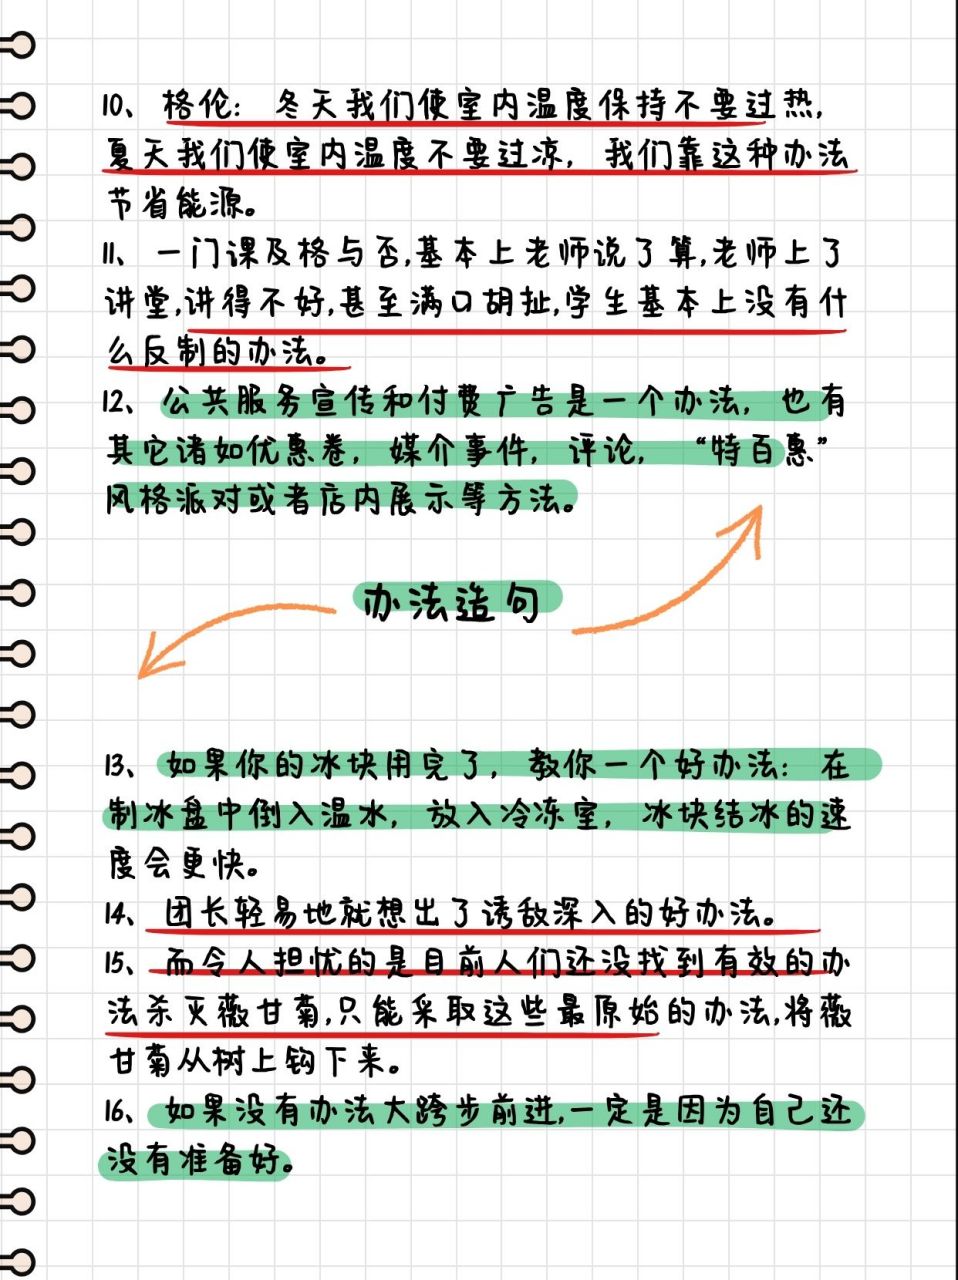 10、格伦: 冬天我们使室内温度保持不要过热,
夏天我们使室内温度不要过凉, 我们靠这种办法
节省能源。
11、一门课及格与否,基本上老师说了算,老师上了
讲堂,讲得不好,甚至满口胡扯,学生基本上没有什
么反制的办法。
12、公共服务宣传和付费广告是一个办法, 也有
其它诸如优惠卷, 媒介事件, 评论, “特百惠”
风格派对或者店内展示等方法。
办法造句
13、如果你的冰块用完了, 教你一个好办法: 在
制冰盘中倒入温水, 放入冷冻室, 冰块结冰的速
度会更快。
14、团长轻易地就想出了诱敌深入的好办法。
15、而令人担忧的是目前人们还没找到有效的办
法杀灭薇甘菊,只能采取这些最原始的办法,将薇
甘菊从树上钩下来。
16、如果没有办法大跨步前进,一定是因为自己还
没有准备好。